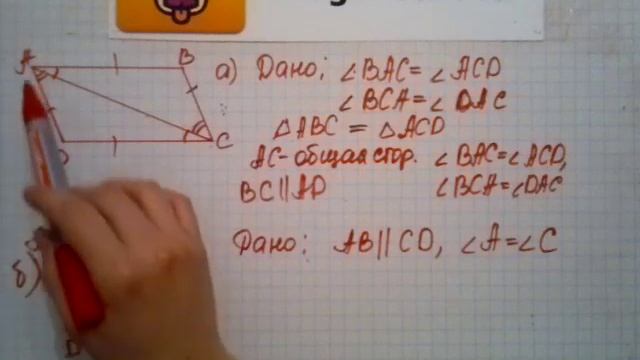 A B C
а) Дано: ∠BAC = ∠ACD
∠BCA = ∠DAC
△ABC = △ACD
AC - общая стор. ∠BAC = ∠ACD,
BC || AD ∠BCA = ∠DAC
Дано: AB || CD, ∠A = ∠C
б)
D